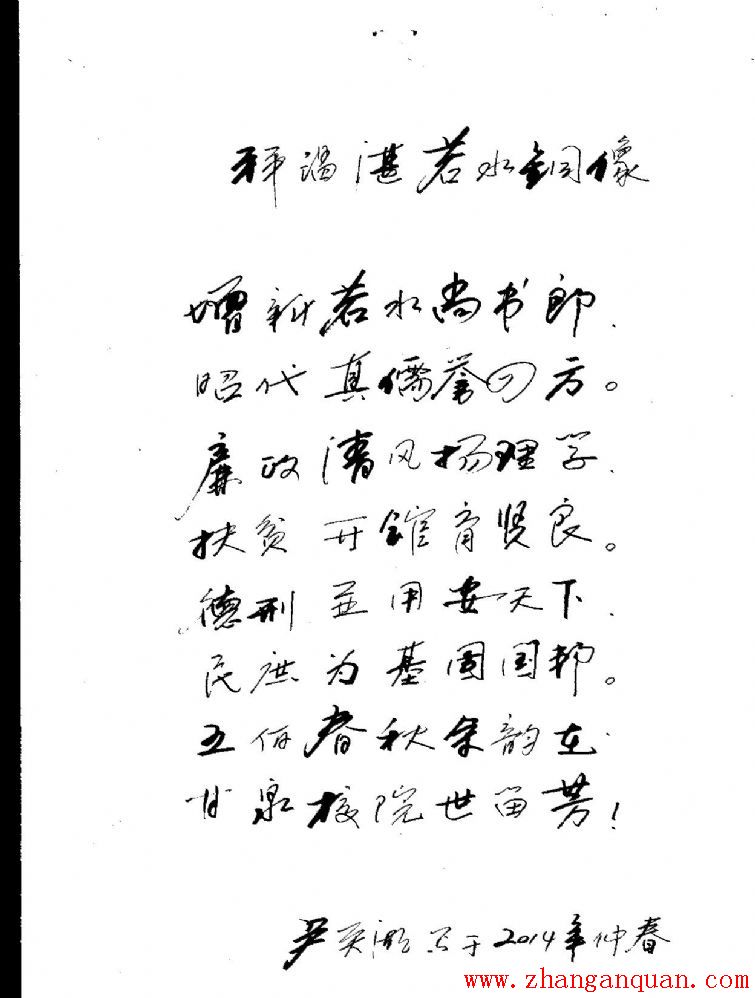 拜谒湛若水铜像
增新若水尚书郎.
昭代真儒誉四方。
廉政清风扬理学.
扶贫开馆育贤良。
德刑並用安天下.
民庶为基固国邦。
五佰春秋余韵在.
甘泉校院世留芳！
尹英 写于2014年仲春
www.zhanganquan.com